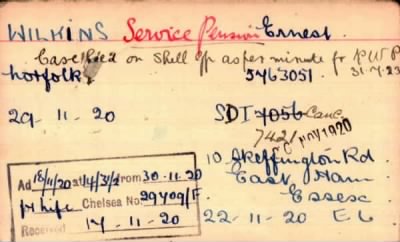 WILKINS Service Pension Ernest.
Case Bked on Shell Op as per minute fr P.W.P
Norfolk 5763051. 31-7-23
29-11-20 SDI 7056 Canc
7421 NOV 1920
10 Skeffington Rd
East Ham
Essex
Ad 18/11/20 at 14/3/2 from 30-11-20
Chelsea No. 29709/F
Received 17-11-20
22-11-20 E6